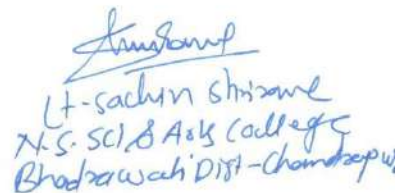 Lt-Sachin Shirame
N.S. Sci & Arts College
Bhadrawati Dist-Chandrapur